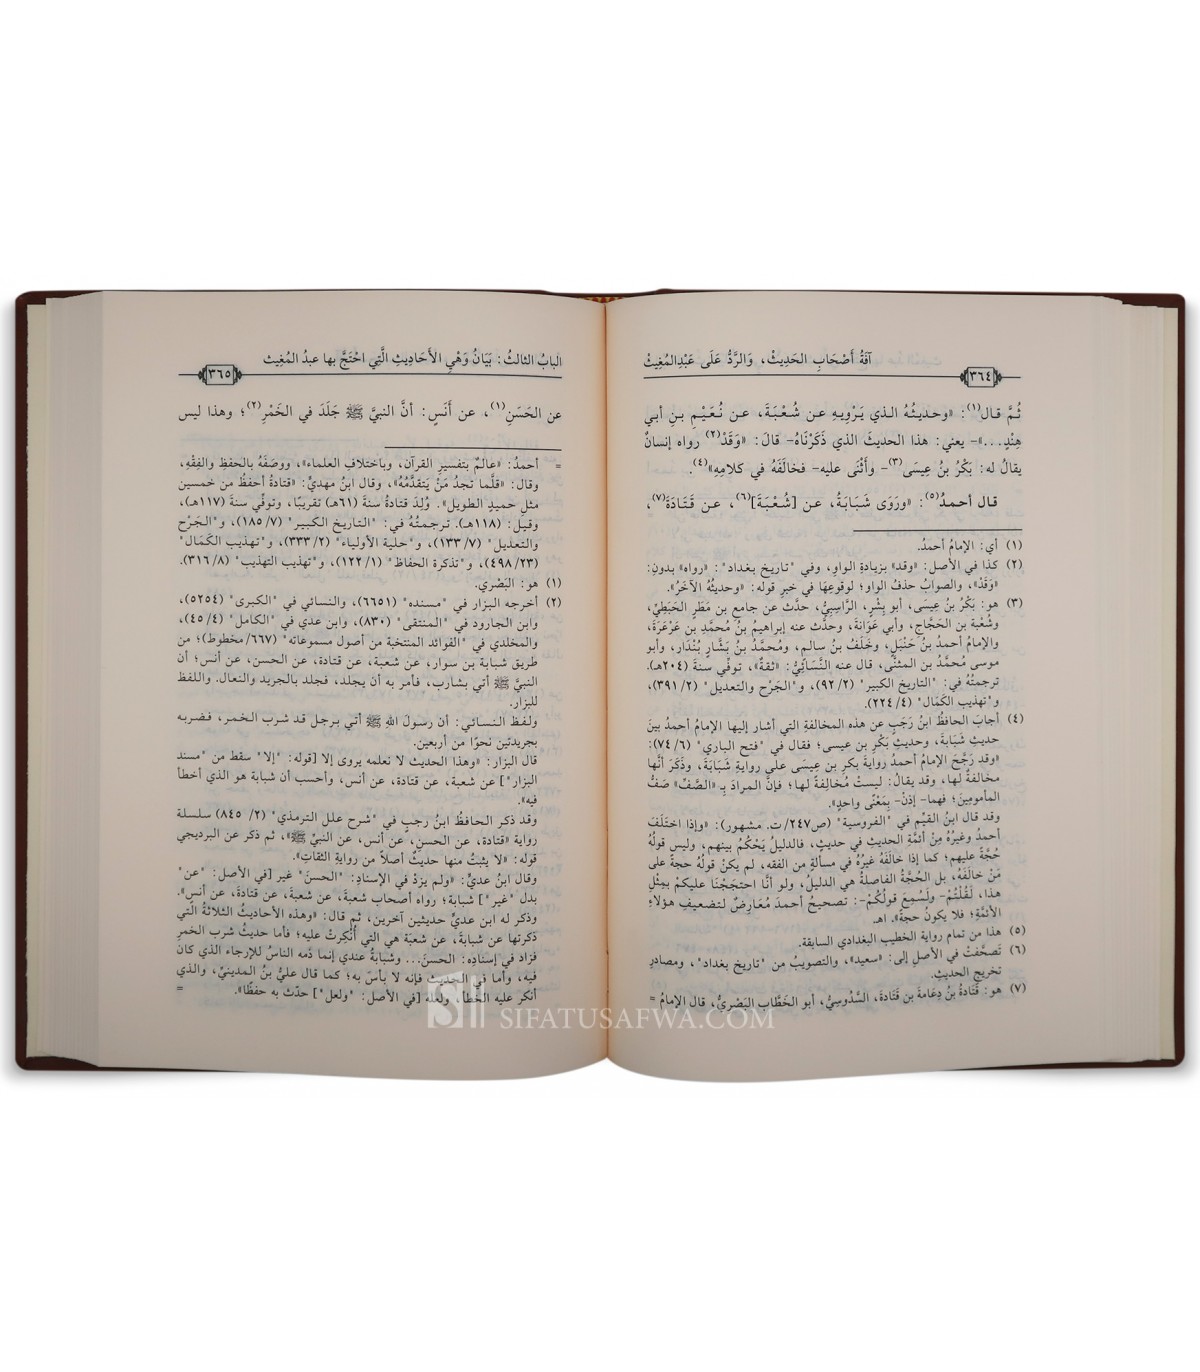 آفَةُ أَصْحَابِ الحَدِيثْ، وَالرَّدُّ عَلَى عَبْدِالمُغِيثْ
٣٦٤
ثُمَّ قال(١): «وحديثُهُ الذي يَرْوِيهِ عن شُعْبَةَ، عن نُعَيْمِ بنِ أبي
هِنْدٍ...»- يعني: هذا الحديثَ الذي ذَكَرْنَاهُ- قالَ: «وَقَدْ(٢) رواه إنسانٌ
يقالُ له: بَكْرُ بنُ عِيسَى(٣)- وأَثْنَى عليه- فخالَفَهُ في كلامِهِ»(٤).
قال أحمدُ(٥): «ورَوَى شَبَابَةُ، عن [شُعْبَةَ](٦)، عن قَتَادَةَ(٧)،
(١) أي: الإمامُ أحمدُ.
(٢) كذا في الأصل: «وقد» بزيادةِ الواوِ، وفي "تاريخ بغداد": «رواه» بدونِ:
«وَقَدْ»، والصوابُ حذفُ الواو؛ لوقوعِهَا في خبرِ قوله: «وحديثُهُ الآخَرُ».
(٣) هو: بَكْرُ بنُ عيسَى، أبو بِشْرٍ، الرَّاسِبِيُّ، حدَّث عن جامعِ بن مَطَرٍ الحَبَطِيِّ،
وشُعْبة بن الحَجَّاجِ، وأبي عَوَانةَ، وحدَّث عنه إبراهيمُ بنُ مُحمَّدِ بن عَرْعَرَةَ،
والإمامُ أحمدُ بنُ حَنْبَلٍ، وخَلَفُ بنُ سالمٍ، ومُحمَّدُ بنُ بَشَّارٍ بُنْدَار، وأبو
موسى مُحمَّدُ بن المثنَّى، قال عنه النَّسَائيُّ: «ثقةٌ»، توفِّي سنةَ (٢٠٤هـ).
ترجمتُهُ في: "التاريخ الكبير" (٩٢/٢)، و"الجَرْح والتعديل" (٣٩١/٢)،
و"تهذيب الكَمَال" (٢٢٤/٤).
(٤) أجابَ الحافظُ ابنُ رَجَبٍ عن هذه المخالفةِ التي أشار إليها الإمامُ أحمدُ بينَ
حديثِ شَبَابَةَ، وحديثِ بَكْرِ بن عيسى؛ فقال في "فتح الباري" (٧٤/٦):
«وقد رَجَّحَ الإمامُ أحمدُ روايةَ بكرِ بن عيسَى على روايةِ شَبَابَةَ، وذَكَرَ أنَّها
مخالفةٌ لها، وقد يقالُ: ليستْ مُخالِفةً لها؛ فإنَّ المرادَ بِـ «الصَّفِّ» صَفُّ
المأمومِينَ؛ فهما- إذَنْ- بِمَعْنًى واحدٍ».
وقد قال ابنُ القيِّم في "الفروسية" (ص٢٤٧/ت. مشهور): «وإذا اختَلَفَ
أحمدُ وغيرُهُ مِنْ أئمَّةِ الحديثِ في حديثٍ، فالدليلُ يَحْكُمُ بينهم، وليس قولُهُ
حُجَّةً عليهم؛ كما إذا خالَفَهُ غيرُهُ في مسألةٍ من الفقه، لم يكنْ قولُهُ حجةً على
مَنْ خالَفَهُ، بل الحُجَّةُ الفاصلةُ هي الدليلُ، ولو أنَّا احتجَجْنَا عليكمْ بمِثْلِ
هذا، لَقُلْتُمْ- ولَسُمِعَ قولُكُمْ-: تصحيحُ أحمدَ مُعَارِضٌ لتضعيفِ هؤلاءِ
الأئمَّةِ؛ فلا يكونُ حجةً». اهـ
(٥) هذا من تمامِ روايةِ الخطيبِ البغدادي السابقة.
(٦) تَصحَّفتْ في الأصلِ إلى: «سعيد»، والتصويبُ من "تاريخ بغداد"، ومصادرِ
تخريجِ الحديثِ.
(٧) هو: قَتَادَةُ بنُ دِعَامةَ بن قَتَادةَ، السَّدُوسيُّ، أبو الخَطَّاب البَصْرِيُّ، قال الإمامُ =
البابُ الثالثُ: بَيَانُ وَهْيِ الأَحَادِيثِ الَّتِي احْتَجَّ بها عبدُ المُغِيث
٣٦٥
عن الحَسَنِ(١)، عن أَنَسٍ: أنَّ النبيَّ ﷺ جَلَدَ في الخَمْرِ(٢)؛ وهذا ليس
= أحمدُ: «عالمٌ بتفسيرِ القرآن، وباختلافِ العلماء»، ووصَفَهُ بالحفظِ والفِقْهِ،
وقال: «قلَّما تجدُ مَنْ يَتقدَّمُهُ»، وقال ابنُ مهديٍّ: «قتادةُ أحفظُ من خمسين
مثلِ حميدٍ الطويل». وُلِدَ قتادةُ سنةَ (٦١هـ) تقريبًا، وتوفِّي سنةَ (١١٧هـ)،
وقيل: (١١٨هـ). ترجمتُهُ في: "التاريخ الكبير" (١٨٥/٧)، و"الجَرْح
والتعديل" (١٣٣/٧)، و"حلية الأولياء" (٣٣٣/٢)، و"تهذيب الكَمَال"
(٤٩٨/٢٣)، و"تذكرة الحفاظ" (١٢٢/١)، و"تهذيب التهذيب" (٣١٦/٨).
(١) هو: البَصْري.
(٢) أخرجه البزار في "مسنده" (٦٦٥١)، والنسائي في "الكبرى" (٥٢٥٤)،
وابن الجارود في "المنتقى" (٨٣٠)، وابن عدي في "الكامل" (٤٥/٤)،
والمخلدي في "الفوائد المنتخبة من أصول مسموعاته" (٦٦٧/مخطوط)؛ من
طريق شبابة بن سوار، عن شعبة، عن قتادة، عن الحسن، عن أنس؛ أن
النبيَّ ﷺ أتي بشارب، فأمر به أن يجلد، فجلد بالجريد والنعال. واللفظ
للبزار.
ولفظ النسائي: أن رسول الله ﷺ أتي برجل قد شرب الخمر، فضربه
بجريدتين نحوًا من أربعين.
قال البزار: «وهذا الحديث لا نعلمه يروى إلا [قوله: "إلا" سقط من "مسند
البزار"] عن شعبة، عن قتادة، عن أنس، وأحسب أن شبابة هو الذي أخطأ
فيه».
وقد ذكر الحافظُ ابنُ رجبٍ في "شرح علل الترمذي" (٢/ ٨٤٥) سلسلة
رواية «قتادة، عن الحسن، عن أنس، عن النبيِّ ﷺ»، ثم ذكر عن البرديجي
قوله: «لا يثبتُ منها حديثٌ أصلاً من روايةِ الثقاتِ».
وقال ابنُ عديٍّ: «ولم يزدْ في الإسنادِ: "الحسنَ" غير [في الأصل: "عن"
بدل "غير"] شبابة؛ رواه أصحابُ شعبةَ، عن شعبةَ، عن قتادةَ، عن أنسٍ».
وذكر له ابن عديٍّ حديثين آخرين، ثم قال: «وهذه الأحاديثُ الثلاثةُ التي
ذكرتها عن شبابةَ، عن شعبَة هي التي أُنكِرتْ عليه؛ فأما حديثُ شربِ الخمرِ
فزاد في إسنادِه: الحسنَ... وشبابةُ عندي إنما ذمَّه الناسُ للإرجاءِ الذي كان
فيه، وأما في الحديثِ فإنه لا بأسَ به؛ كما قال عليُّ بنُ المدينيِّ، والذي
أنكر عليه الخطأَ، ولعلَّه [في الأصل: "ولعل"] حدّث به حفظًا». =
SIFATUSAFWA.COM